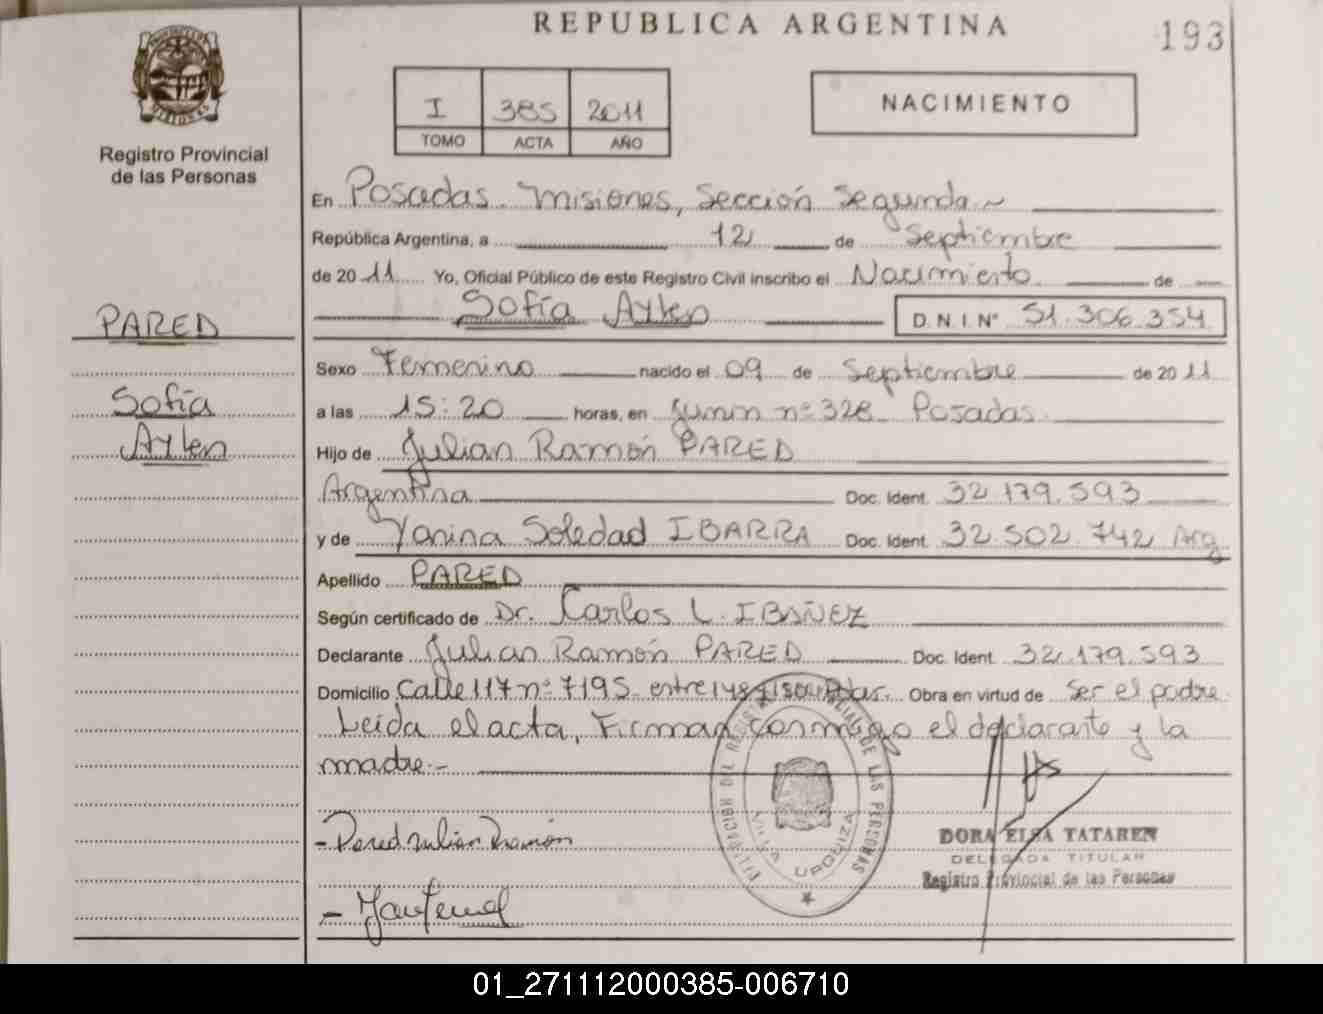 REPUBLICA ARGENTINA
193
Registro Provincial
de las Personas
I 385 2011
TOMO ACTA AÑO
NACIMIENTO
En Posadas. Misiones, Sección Segunda
República Argentina, a 12 de Septiembre
de 2011 Yo, Oficial Público de este Registro Civil inscribo el Nacimiento de
Sofía Aylen D.N.I. N° 51.306.354
PARED
Sofía
Aylen
Sexo Femenino nacido el 09 de Septiembre de 2011
a las 15:20 horas, en Junin n° 328 Posadas.
Hijo de Julian Ramón PARED
Argentina Doc. Ident. 32.179.593
y de Yanina Soledad IBARRA Doc. Ident. 32.502.742 Arg
Apellido PARED
Según certificado de Dr. Carlos L. IBAÑEZ
Declarante Julian Ramón PARED Doc. Ident. 32.179.593
Domicilio Calle 117 n° 7195 entre 148 y 150 Obra en virtud de Ser el padre
Leida el acta, Firman conmigo el declarante y la
madre.-
- Pared Julian Ramón
VILLA URQUIZA
DORA ELSA TATAREN
DELEGADA TITULAR
Registro Provincial de las Personas
01_271112000385-006710